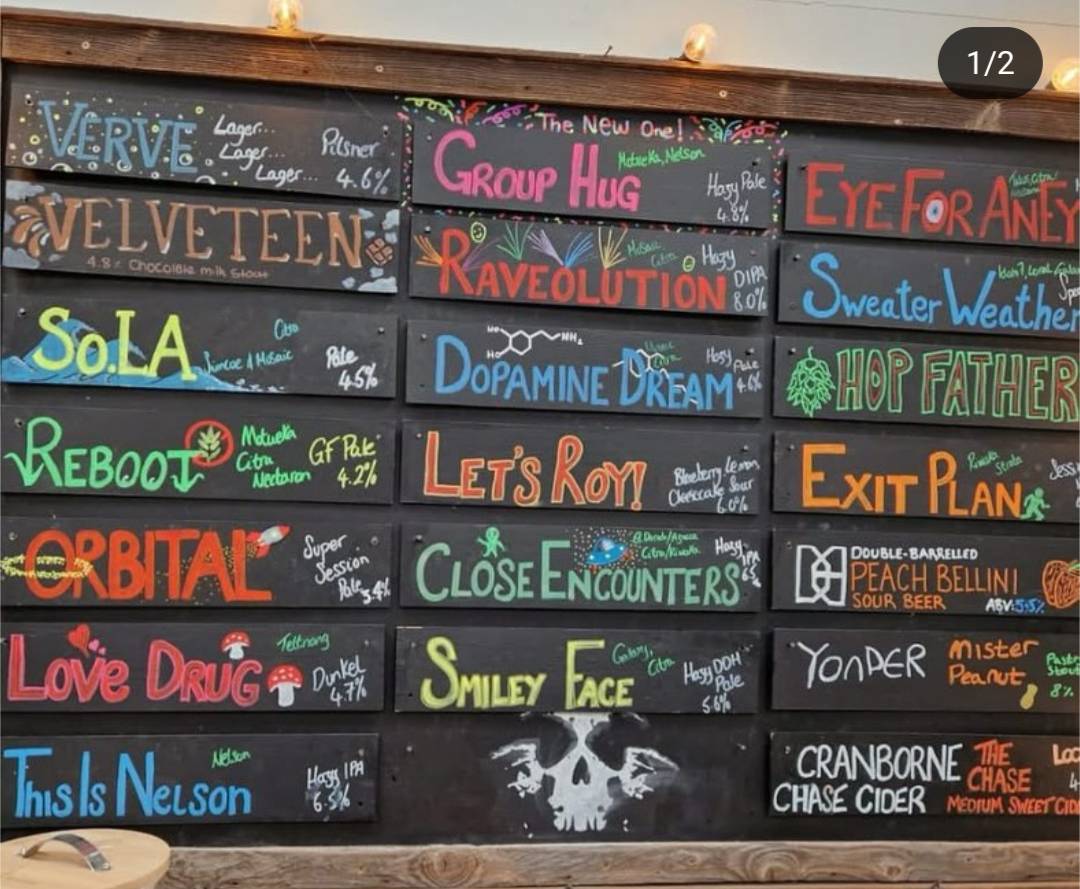 1/2
VERVE
Lager...
Lager...
Lager...
Pilsner
4.6%
VELVETEEN
4.8% Chocolate milk stout
So.LA
Citra
Simcoe & Mosaic
Pale
4.5%
REBOOT
Motueka
Citra
Nectaron
GF Pale
4.2%
ORBITAL
Super
Session
Pale 3.4%
LOVE DRUG
Tettnang
Dunkel
4.7%
THIS IS NELSON
Nelson
Hazy IPA
6.5%
The New One!
GROUP HUG
Motueka, Nelson
Hazy Pale
4.8%
RAVEOLUTION
Mosaic
Citra
Hazy
DIPA
8.0%
HO
HO
NH₂
DOPAMINE DREAM
Citra
Hazy
Pale
4.6%
LET'S ROY!
Blueberry Lemon
Cheesecake Sour
6.0%
CLOSE ENCOUNTERS
Citra/
Hazy
IPA
SMILEY FACE
Galaxy,
Citra
Hazy DDH
Pale
5.6%
EYE FOR AN EY
SWEATER WEATHER
HOP FATHER
EXIT PLAN
DOUBLE-BARRELLED
PEACH BELLINI
SOUR BEER
ABV: 5.5%
YONDER
Mister
Peanut
Pastr
Stout
8%
CRANBORNE
CHASE CIDER
THE
CHASE
MEDIUM SWEET CID